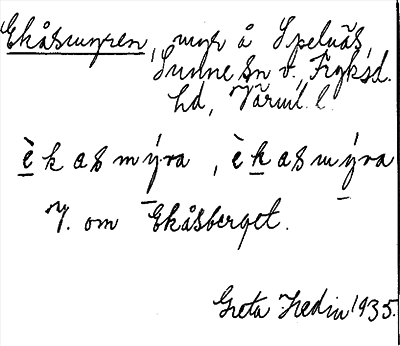 Ekåsmyren, myr å Spelnäs,
Sunne sn o., Fryksd.
hd, Värml. l.
è k a s m ý r a , è k a s m ý r a
V. om Ekåsberget.
Greta Hedin 1935.